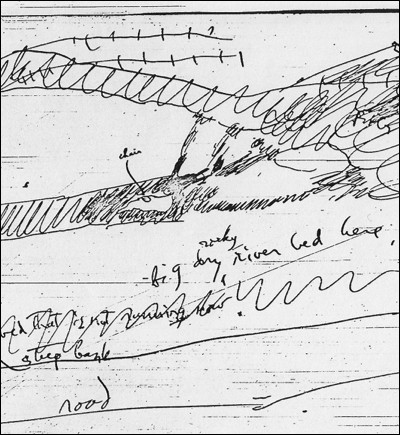 rocky
-big dry river bed here.
that is not running now.
steep bank
road